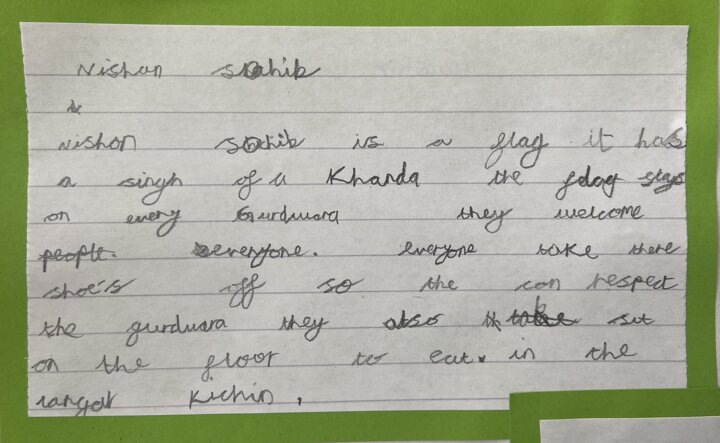 Nishan Sahib
Nishon Sahib is a flag it has
a singh of a Khanda the flag stays
on every Gurdwara they welcome
people. everyone. everyone take there
shoe's off so the con respect
the gurdwara they also sit
on the floor to eat. in the
langar Kichin.